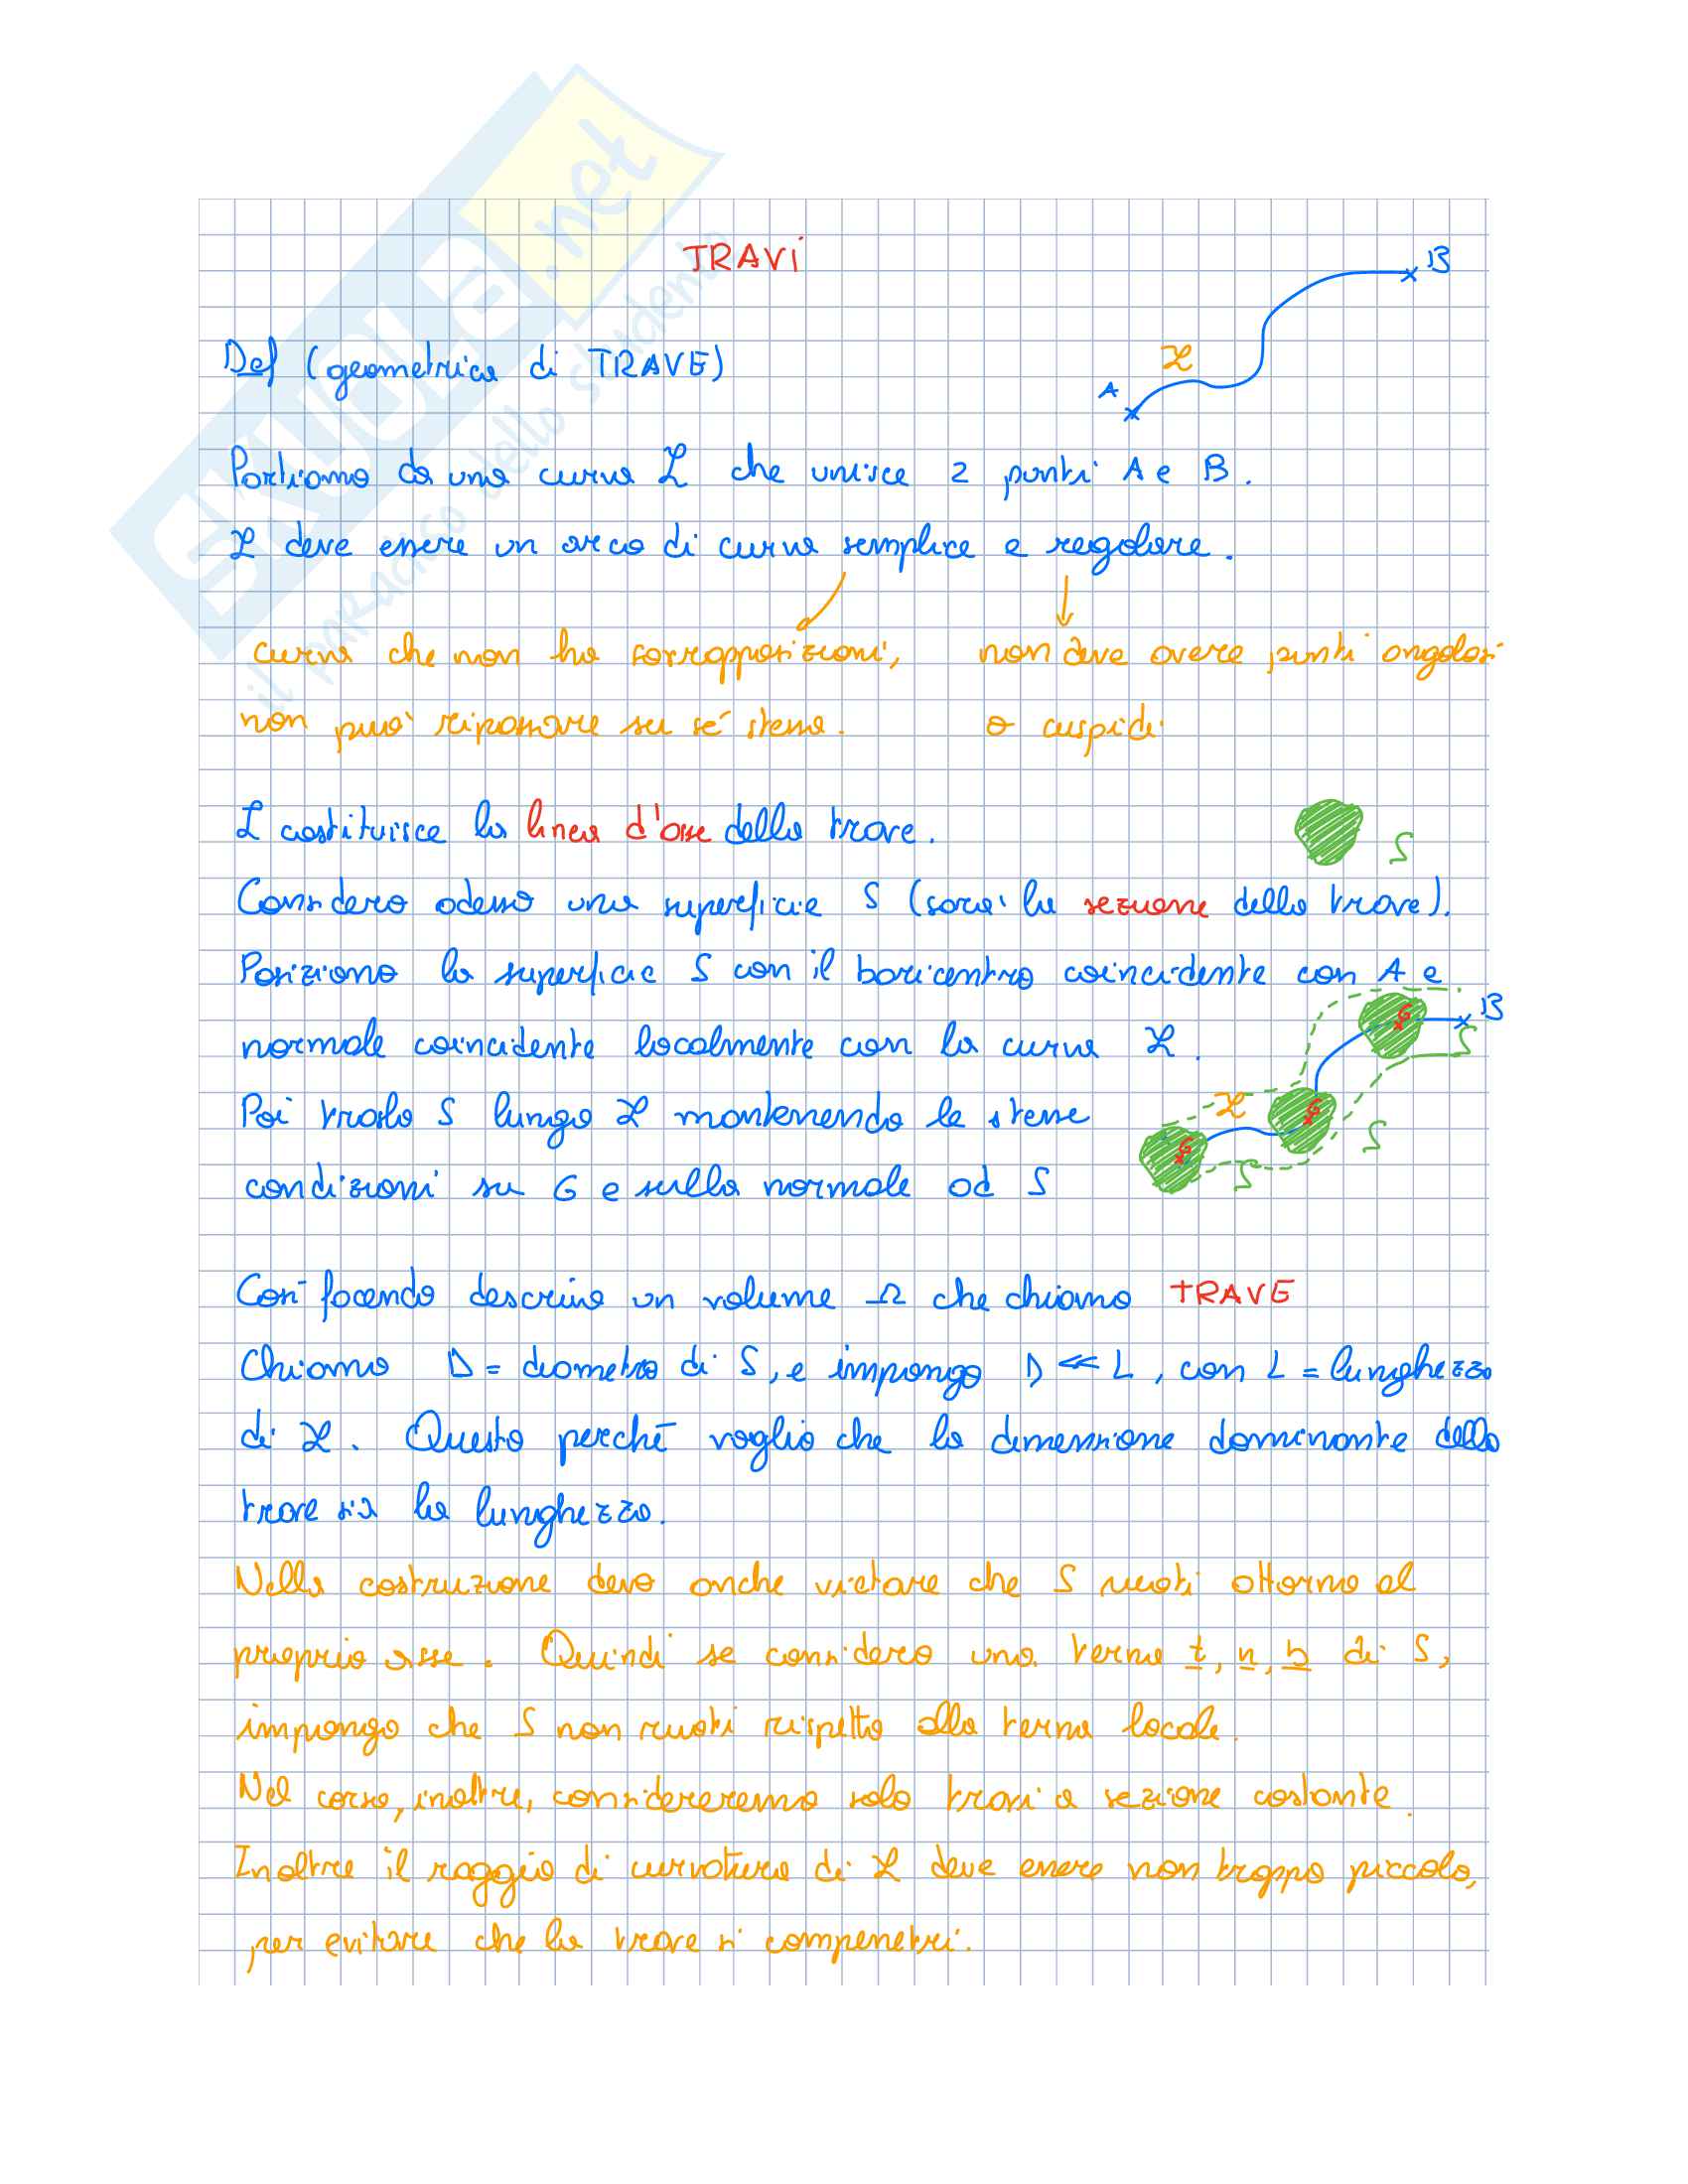 SKUOLA.net
il paradiso dello studente
TRAVI
B
A
ℒ
Def (geometrica di TRAVE)
Partiamo da una curva ℒ che unisce 2 punti A e B.
ℒ deve essere un arco di curva semplice e regolare.
curva che non ha sovrapposizioni, non deve avere punti angolosi
non può ripassare su sé stessa. o cuspidi
ℒ costituisce la linea d'asse della trave.
S
Considero adesso una superficie S (sarà la sezione della trave).
Posiziono la superficie S con il baricentro coincidente con A e
normale coincidente localmente con la curva ℒ.
Poi traslo S lungo ℒ mantenendo le stesse
condizioni su G e sulla normale ad S
G B
S
ℒ G
S
G S
Così facendo descrivo un volume Ω che chiamo TRAVE
Chiamo D = diametro di S, e impongo D << L, con L = lunghezza
di ℒ. Questo perché voglio che la dimensione dominante della
trave sia la lunghezza.
Nella costruzione devo anche vietare che S ruoti attorno al
proprio asse. Quindi se considero una terna t, n, b di S,
impongo che S non ruoti rispetto alla terna locale.
Nel corso, inoltre, considereremo solo travi a sezione costante.
Inoltre il raggio di curvatura di ℒ deve essere non troppo piccolo,
per evitare che la trave si compenetri.